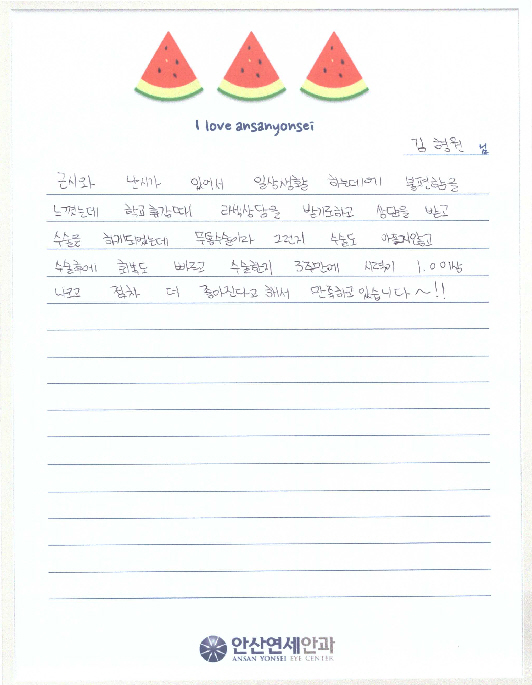 I love ansanyonsei
김형원 님
근시와 난시가 있어서 일상생활 하는데에 불편함을
느꼈는데 학교휴강때 라식상담을 받기로하고 상담을 받고
수술을 하게되었는데 무통수술이라 그런지 수술도 아프지않고
수술후에 회복도 빠르고 수술한지 3주만에 시력이 1.0이상
나오고 점차 더 좋아진다고 해서 만족하고있습니다~!!
안산연세안과
ANSAN YONSEI EYE CENTER